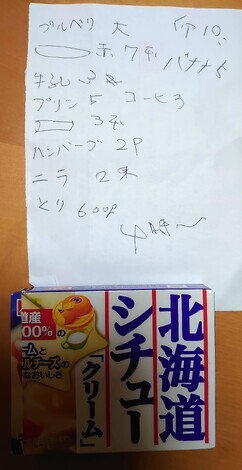 ブルベリ 大 卵10コ
赤 7本 バナナ5
牛乳 3本
プリン 5 コーヒ3
3本
ハンバーグ 2P
ニラ 2束
とり 600g
北海道
シチュー
「クリーム」
道産
00%の
ームと
ルチーズの
なおいしさ